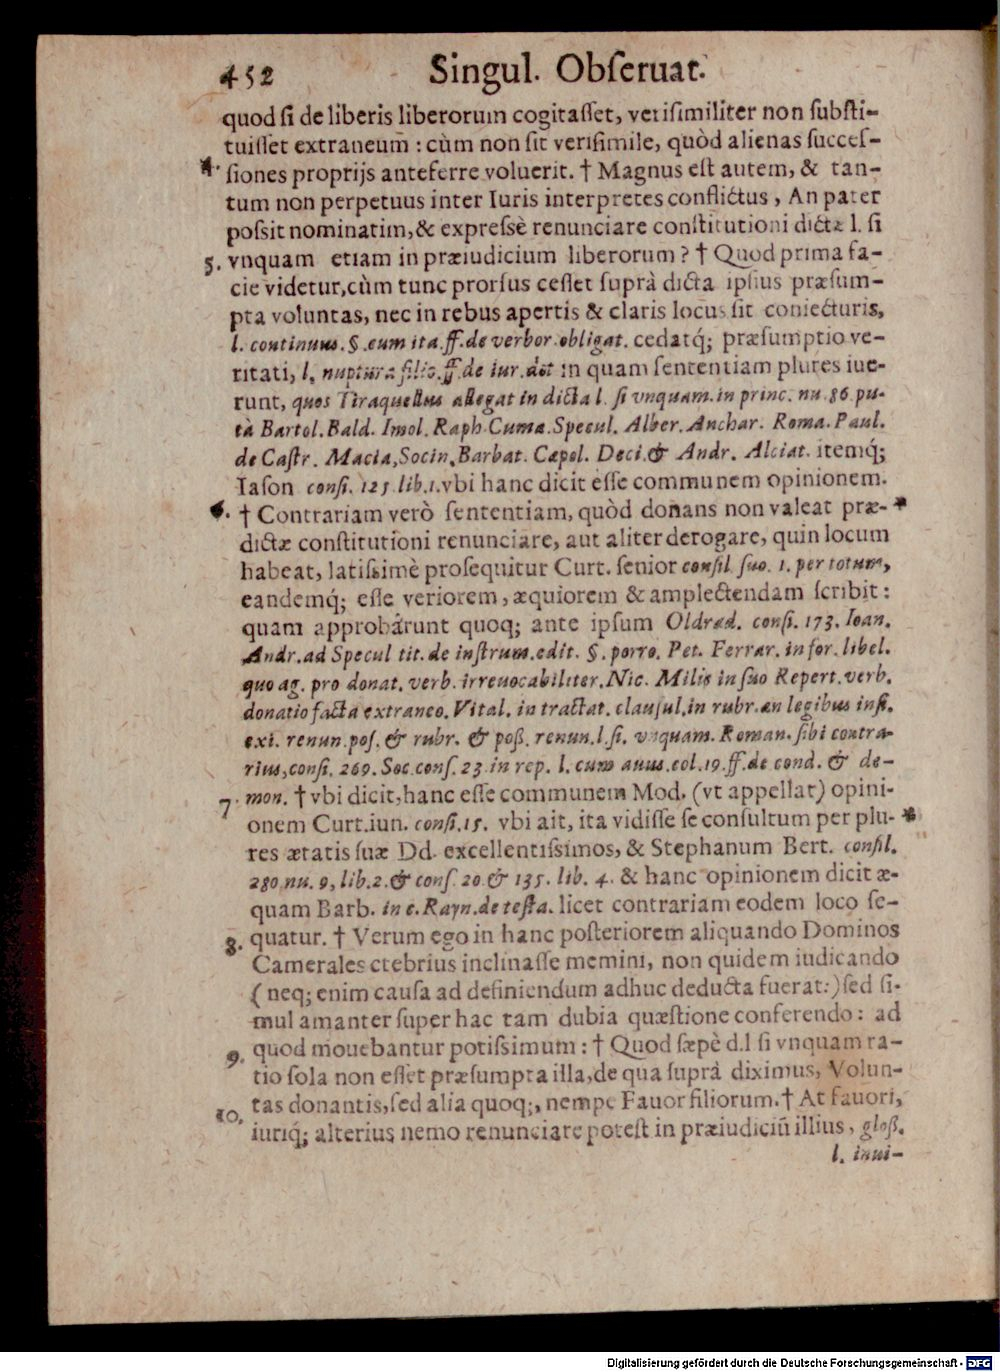 452 Singul. Obſeruat.
quod ſi de liberis liberorum cogitaſſet, veriſimiliter non ſubſti-
tuiſſet extraneum̃ : cùm non ſit veriſimile, quòd alienas ſucceſ-
4. ſiones proprijs anteferre voluerit. † Magnus eſt autem, & tan-
tum non perpetuus inter Iuris interpretes conflictus, An pater
poſsit nominatim, & expreſsè renunciare conſtitutioni dictæ l. ſi
5. vnquam etiam in præiudicium liberorum? † Quod prima fa-
cie videtur, cùm tunc prorſus ceſſet ſuprà dicta ipſius præſum-
pta voluntas, nec in rebus apertis & claris locus ſit coniecturis,
l. continuus. §. cum ita. ff. de verbor. obligat. cedatq́; præſumptio ve-
ritati, l. nuptura filio. ff. de iur. dot in quam ſententiam plures iue-
runt, quos Tiraquellus allegat in dicta l. ſi vnquam. in princ. nu. 86. pu-
tà Bartol. Bald. Imol. Raph. Cuma. Specul. Alber. Anchar. Roma. Paul.
de Caſtr. Macia, Socin, Barbat. Cæpol. Deci. & Andr. Alciat. itemq́;
Iaſon conſi. 125. lib. 1. vbi hanc dicit eſſe communem opinionem.
6. † Contrariam verò ſententiam, quòd donans non valeat præ- *
dictæ conſtitutioni renunciare, aut aliter derogare, quin locum
habeat, latiſsimè proſequitur Curt. ſenior conſil. ſuo. 1. per totum,
eandemq́; eſſe veriorem, æquiorem & amplectendam ſcribit:
quam approbârunt quoq; ante ipſum Oldrad. conſi. 173. Ioan.
Andr. ad Specul tit. de inſtrum. edit. §. porro. Pet. Ferrar. in for. libel.
quo ag. pro donat. verb. irreuocabiliter. Nic. Milis in ſuo Repert. verb.
donatio facta extraneo. Vital. in tractat. clauſul. in rubr. an legibus inſi.
exi. renun. poſ. & rubr. & poß. renun. l. ſi. vnquam. Roman. ſibi contra-
rius, conſi. 269. Soc. conſ. 23. in rep. l. cum auus. col. 19. ff. de cond. & de-
7. mon. † vbi dicit, hanc eſſe communem Mod. (vt appellat) opini-
onem Curt. iun. conſi. 15. vbi ait, ita vidiſſe ſe conſultum per plu- *
res ætatis ſuæ Dd. excellentiſsimos, & Stephanum Bert. conſil.
280. nu. 9, lib. 2. & conſ. 20. & 135. lib. 4. & hanc opinionem dicit æ-
quam Barb. in c. Rayn. de teſta. licet contrariam eodem loco ſe-
8. quatur. † Verum ego in hanc poſteriorem aliquando Dominos
Camerales crebrius inclinaſſe memini, non quidem iudicando
(neq; enim cauſa ad definiendum adhuc deducta fuerat:) ſed ſi-
mul amanter ſuper hac tam dubia quæſtione conferendo: ad
9. quod mouebantur potiſsimum: † Quod ſæpè d. l ſi vnquam ra-
tio ſola non eſſet præſumpta illa, de qua ſuprà diximus, Volun-
tas donantis, ſed alia quoq;, nempe Fauor filiorum. † At fauori,
10. iuriq́; alterius nemo renunciare poteſt in præiudiciũ illius, gloß.
l. inui-
Digitalisierung gefördert durch die Deutsche Forschungsgemeinschaft - DFG